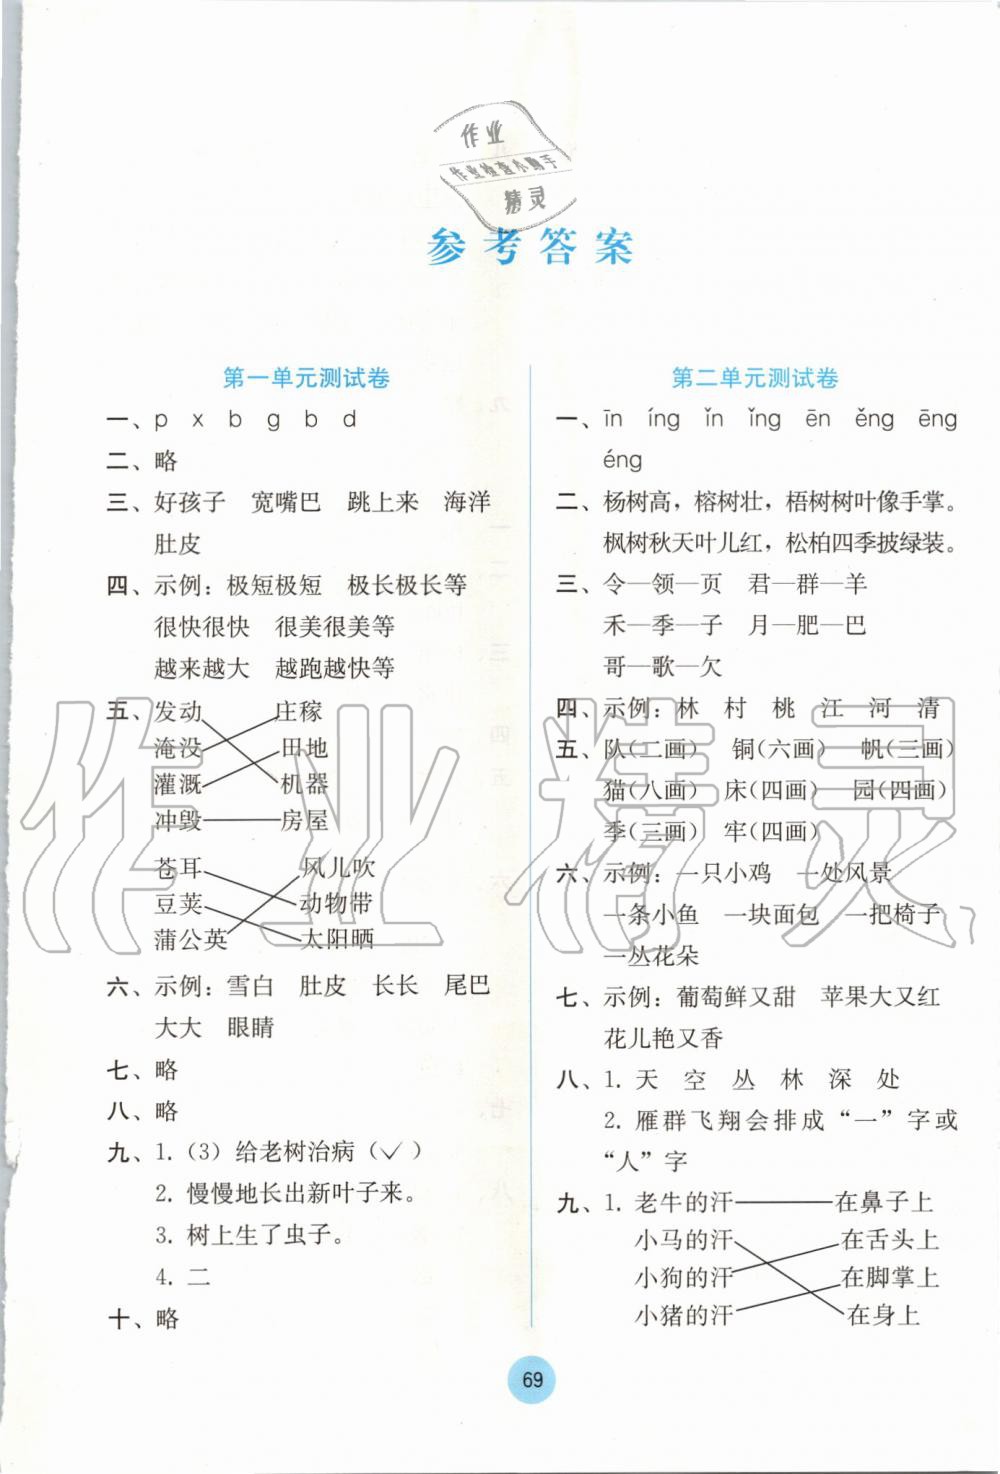 作业
作业检查小助手
精灵
参考答案
第一单元测试卷
一、p x b g b d
二、略
三、好孩子 宽嘴巴 跳上来 海洋
肚皮
四、示例：极短极短 极长极长等
很快很快 很美很美等
越来越大 越跑越快等
五、发动 庄稼
淹没 田地
灌溉 机器
冲毁 房屋
苍耳 风儿吹
豆荚 动物带
蒲公英 太阳晒
六、示例：雪白 肚皮 长长 尾巴
大大 眼睛
七、略
八、略
九、1.（3）给老树治病（✓）
2. 慢慢地长出新叶子来。
3. 树上生了虫子。
4. 二
十、略
第二单元测试卷
一、īn íng ǐn ǐng ēn ěng ēng
éng
二、杨树高，榕树壮，梧桐树叶像手掌。
枫树秋天叶儿红，松柏四季披绿装。
三、令—领—页 君—群—羊
禾—季—子 月—肥—巴
哥—歌—欠
四、示例：林 村 桃 江 河 清
五、队(二画) 铜(六画) 帆(三画)
猫(八画) 床(四画) 园(四画)
季(三画) 牢(四画)
六、示例：一只小鸡 一处风景
一条小鱼 一块面包 一把椅子
一丛花朵
七、示例：葡萄鲜又甜 苹果大又红
花儿艳又香
八、1. 天 空 丛 林 深 处
2. 雁群飞翔会排成“一”字或
“人”字
九、1. 老牛的汗 在鼻子上
小马的汗 在舌头上
小狗的汗 在脚掌上
小猪的汗 在身上
69
作业精灵